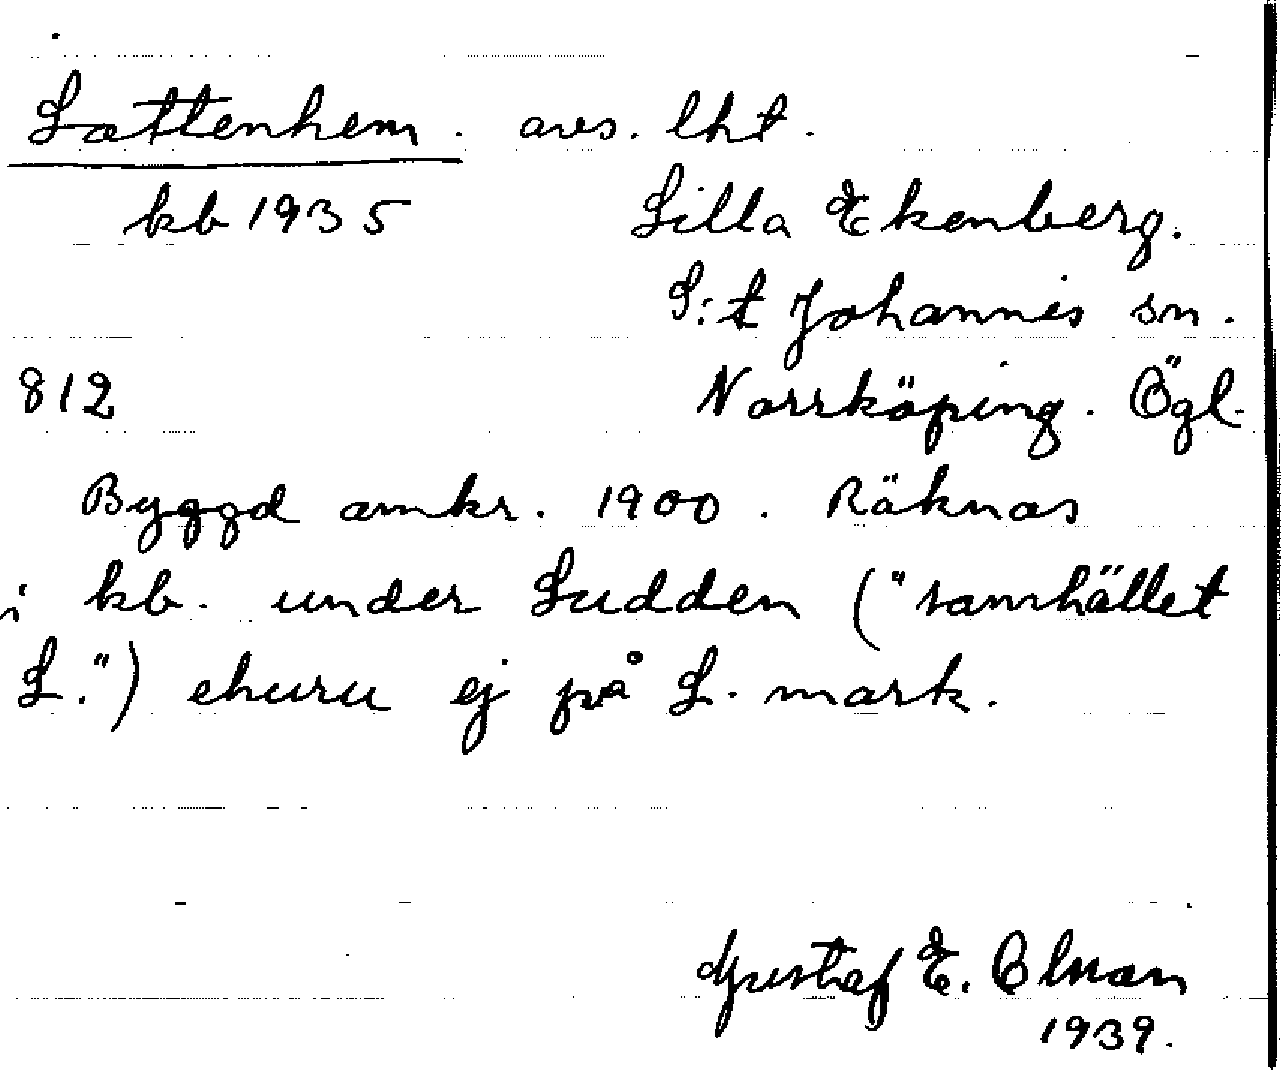 Lottenhem. avs. lht.
kb 1935 Lilla Ekenberg.
S:t Johannis sn.
812 Norrköping. Ögl.
Byggd omkr. 1900. Räknas
i kb. under Ludden ("samhället
L.") ehuru ej på L. mark.
Gustaf E. Olman
1939.